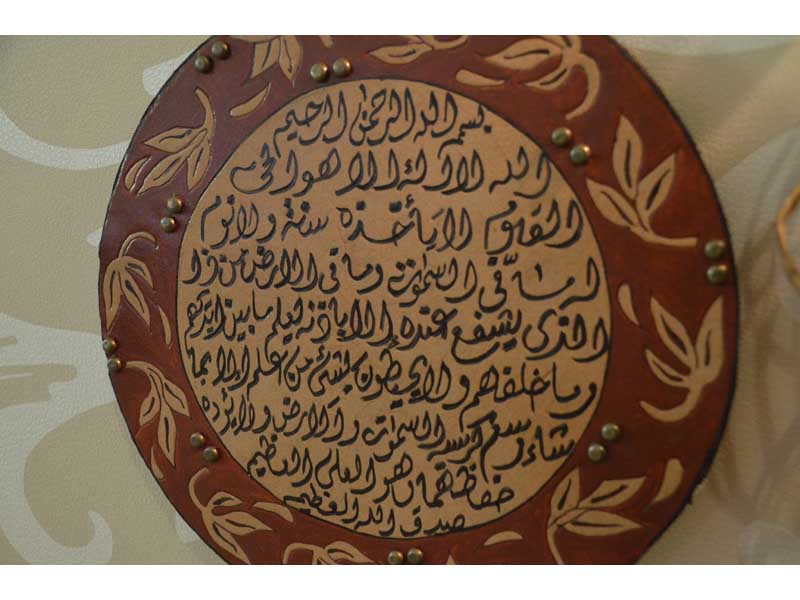 بسم الله الرحمن الرحيم
الله لا اله الا هو الحي
القيوم لا يأخذه سنة ولا نوم
له ما في السموت وما في الارض من ذا
الذي يشفع عنده الا باذنه يعلم ما بين ايديهم
وما خلفهم ولا يحيطون بشئ من علمه الا بما
شاء وسع كرسيه السموت والارض ولا يؤده
حفظهما وهو العلي العظيم
صدق الله العظيم